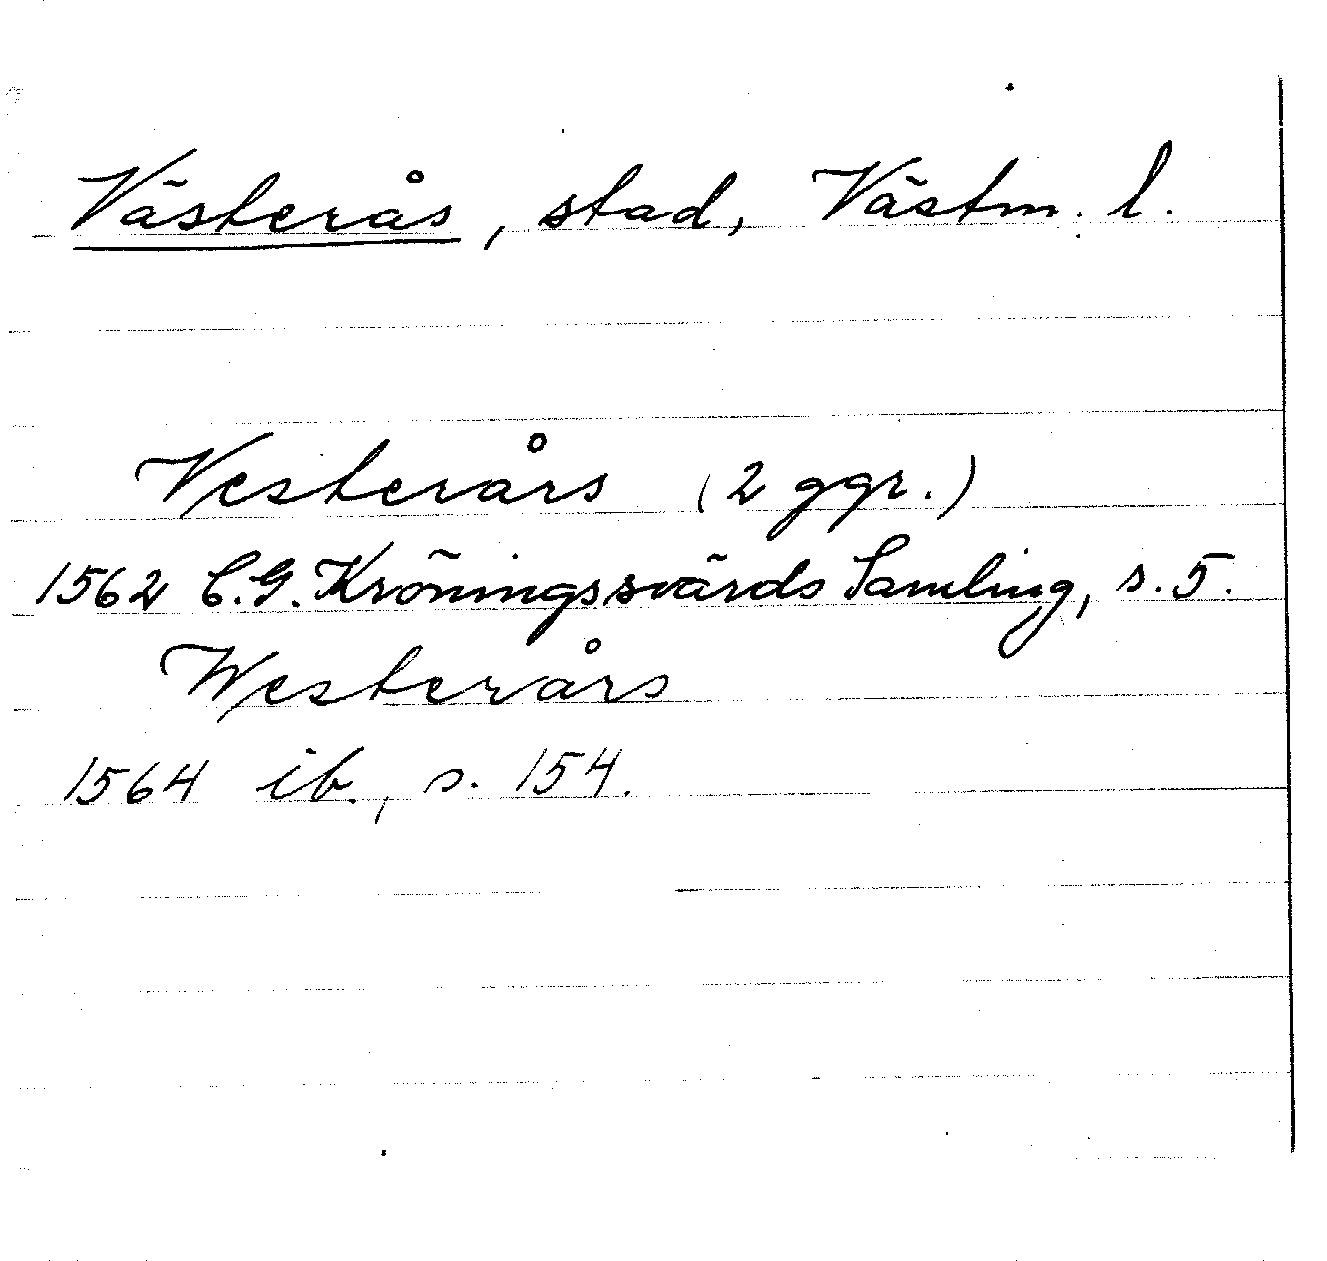 Västerås, stad, Västm. l.
Vesterårs (2 ggr.)
1562 C.G. Kröningssvärds Samling, s. 5.
Westerårs
1564 ib., s. 154.